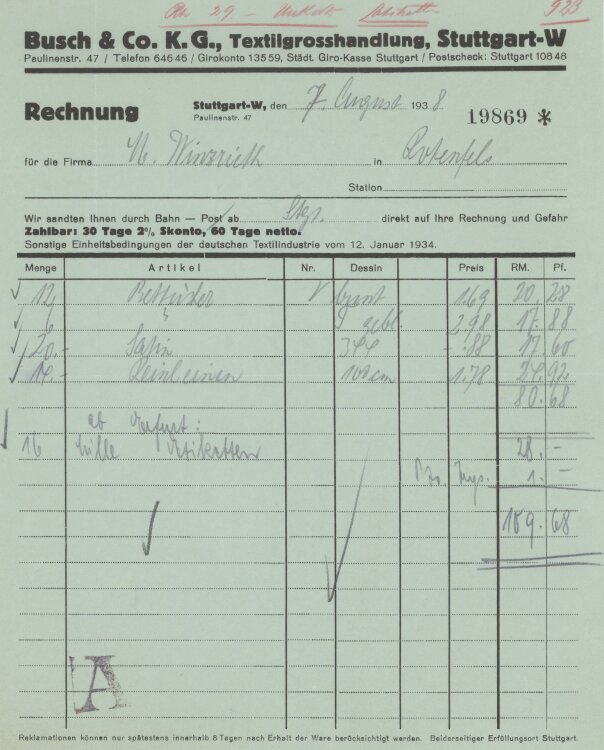 Busch & Co. K. G., Textilgrosshandlung, Stuttgart-W
Paulinenstr. 47 / Telefon 64646 / Girokonto 13559, Städt. Giro-Kasse Stuttgart / Postscheck: Stuttgart 10848
Rechnung
Stuttgart-W, den 7. August 1938
Paulinenstr. 47
19869 *
für die Firma in Rotenfels
Station
Wir sandten Ihnen durch Bahn — Post ab Stgt. direkt auf Ihre Rechnung und Gefahr
Zahlbar: 30 Tage 2% Skonto, 60 Tage netto.
Sonstige Einheitsbedingungen der deutschen Textilindustrie vom 12. Januar 1934.
Menge Artikel Nr. Dessin Preis RM. Pf.
12 Bettücher bunt 1.69 20. 28
6 " gebl. 2.98 17. 88
20.- Satin 344 -.88 17. 60
14.- 100 cm 1.78 24. 92
80. 68
ab
16 28. -
1. -
109. 68
A
Reklamationen können nur spätestens innerhalb 8 Tagen nach Erhalt der Ware berücksichtigt werden. Beiderseitiger Erfüllungsort Stuttgart.